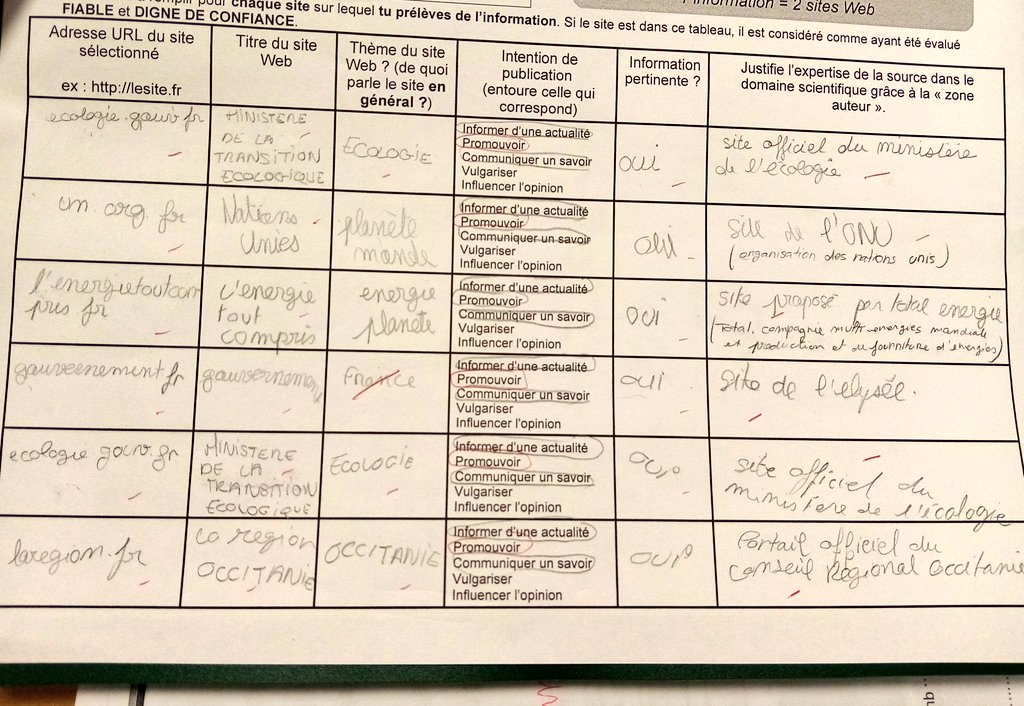 chaque site sur lequel tu prélèves de l'information. Si le site est dans ce tableau, il est considéré comme ayant été évalué
FIABLE et DIGNE DE CONFIANCE.
= 2 sites Web
Adresse URL du site
sélectionné
ex : http://lesite.fr
Titre du site
Web
Thème du site
Web ? (de quoi
parle le site en
général ?)
Intention de
publication
(entoure celle qui
correspond)
Information
pertinente ?
Justifie l'expertise de la source dans le
domaine scientifique grâce à la « zone
auteur ».
ecologie.gouv.fr
MINISTERE
DE LA
TRANSITION
ECOLOGIQUE
ECOLOGIE
Informer d'une actualité
Promouvoir
Communiquer un savoir
Vulgariser
Influencer l'opinion
oui
site officiel du ministère
de l'écologie
un.org.fr
Nations
Unies
planète
monde
Informer d'une actualité
Promouvoir
Communiquer un savoir
Vulgariser
Influencer l'opinion
oui
site de l'ONU
(organisation des nations unis)
l'energietoutcom
pris fr
l'energie
tout
compris
energie
planete
Informer d'une actualité
Promouvoir
Communiquer un savoir
Vulgariser
Influencer l'opinion
oui
site proposé par total energie
(Total, compagnie multi-energies mondiale
et production et de fourniture d'énergies)
gouvernement.fr
gouvernement
France
Informer d'une actualité
Promouvoir
Communiquer un savoir
Vulgariser
Influencer l'opinion
oui
site de l'elysée.
ecologie gouv.fr
MINISTERE
DE LA
TRANSITION
ECOLOGIQUE
ECOLOGIE
Informer d'une actualité
Promouvoir
Communiquer un savoir
Vulgariser
Influencer l'opinion
oui
site officiel du
ministere de l'écologie
laregion.fr
la region
OCCITANIE
OCCITANIE
Informer d'une actualité
Promouvoir
Communiquer un savoir
Vulgariser
Influencer l'opinion
oui
Portail officiel du
Conseil Régional Occitanie